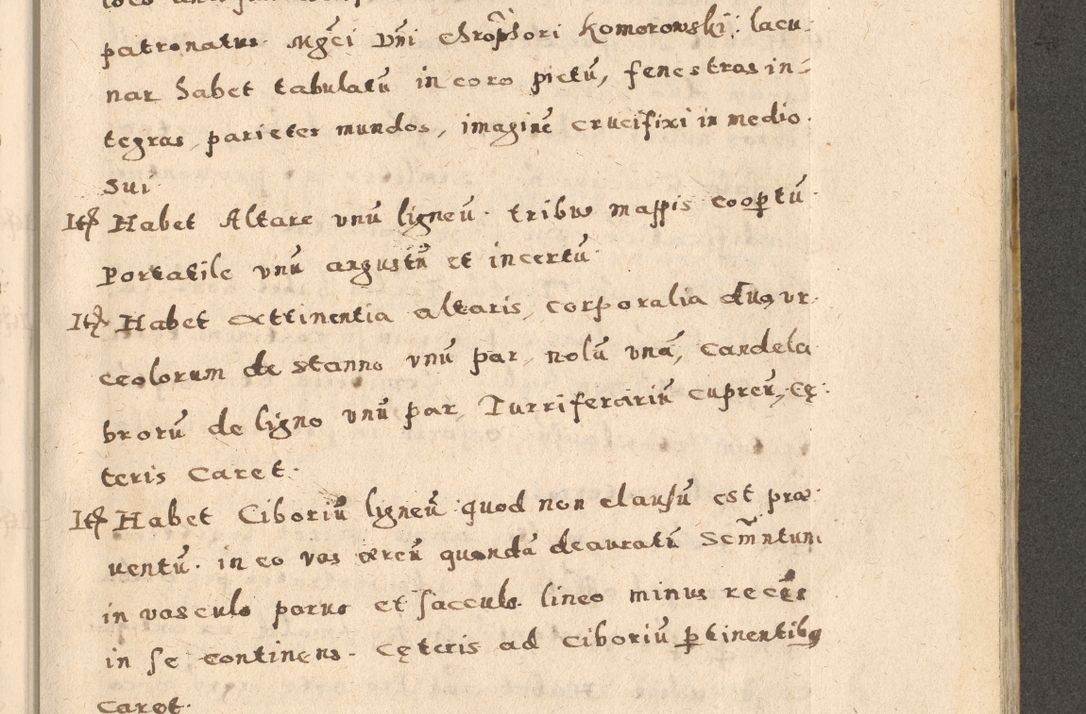 patronatus Mgci Dni Chrophori Komorowski: lacu-
nar habet tabulatū in coro pictū, fenestras in-
tegras, parietes mundos, imaginē crucifixi in medio
sui
Itē Habet Altare vnū ligneū. tribus mappis coopertū
Portatile vnū angustū et incertū
Itē Habet attinentia altaris, corporalia duo, vr-
ceolorum de stanno vnū par, nolā vnā, candela
brorū de ligno vnū par, Turriferariū cupreū, cę-
teris caret.
Itē Habet Ciborium ligneū quod non clausū est præ-
uentū. in eo vas æreū quondā deauratū Scm̄ntum
in vasculo paruo et sacculo lineo minus recēs
in se continens. cęteris ad ciboriū ptinentibus
caret.